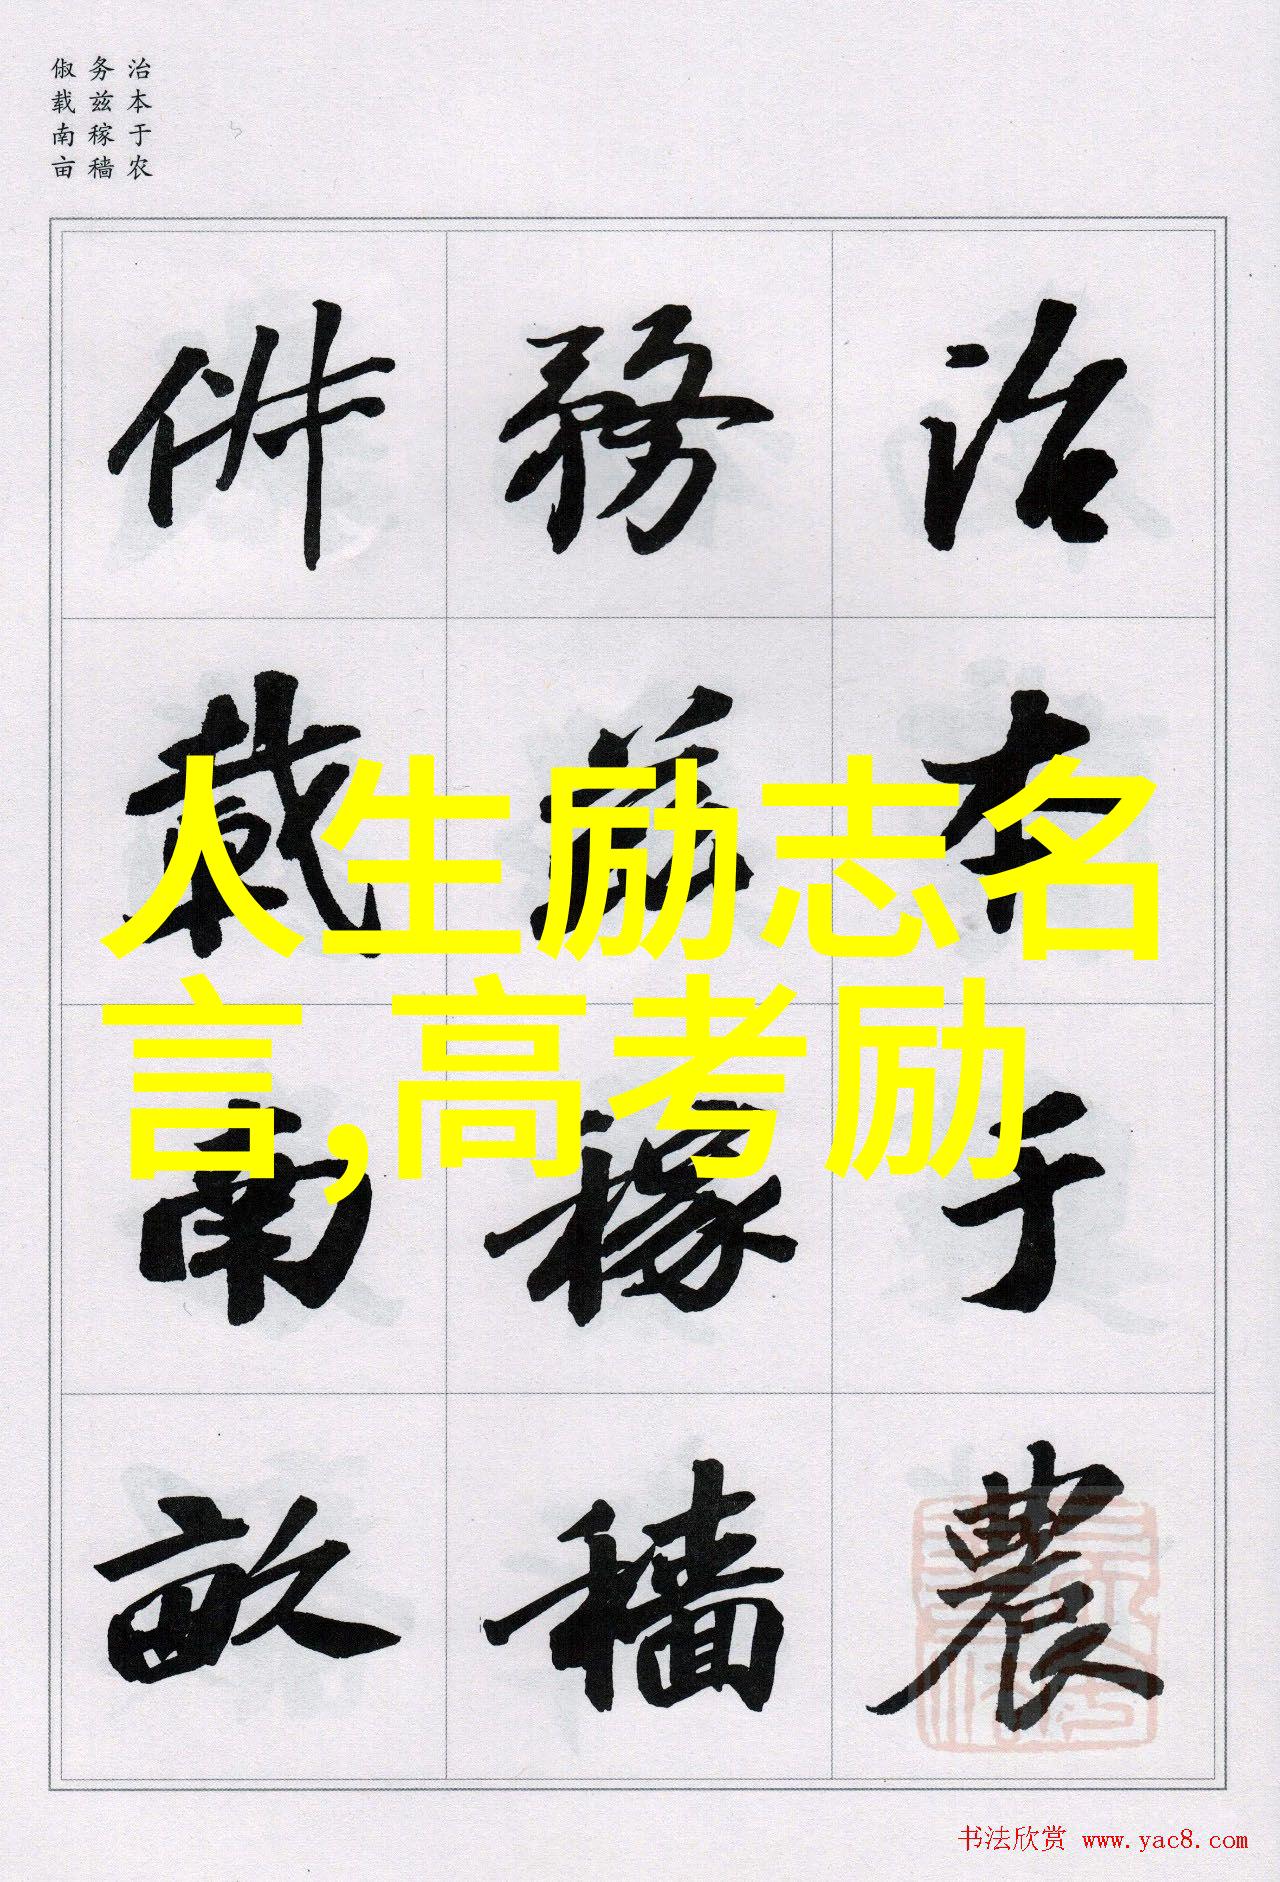 治本于农
务兹稼穑
俶载南亩
治本于農
務茲稼穡
俶載南畝
人生励志名
言,高考励
书法欣赏 www.yac8.com